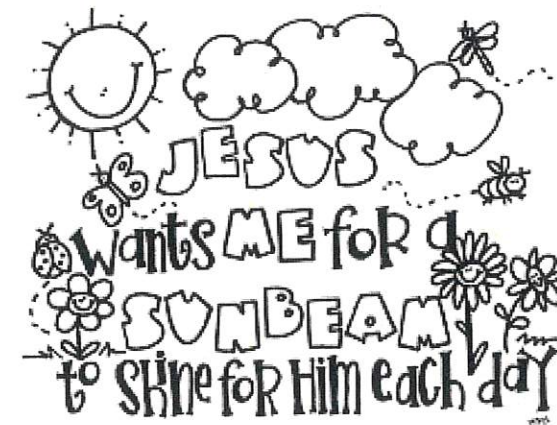 JESUS
wants ME foR a
SUNBEAM
to ShinefoR Him each day